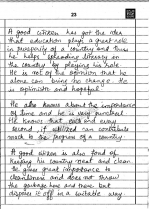 23
A good citizen has got the idea
that education plays a great role
in prosperity of a country and thus
he helps spreading literacy in
the country by playing his role.
He is not of the opinion that he
alone can bring no change. He
is optimistic and hopeful.
He also knows about the importance
of time and he is very punctual.
He knows that each and every
second if utilized can contribute
much to the progress of a country.
A good citizen is also fond of
keeping his country neat and clean.
He gives great importance to
cleanliness and does not throw
the garbage here and there but
disposes it off in a suitable way.